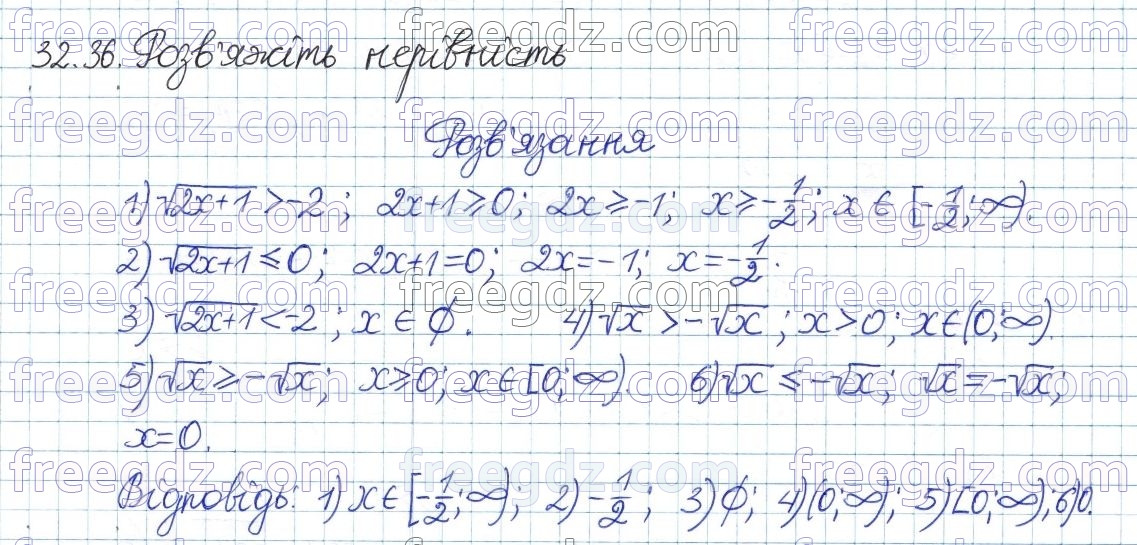 32.36. Розв'яжіть нерівність
Розв'язання
1) √(2x+1) > -2; 2x+1 ≥ 0; 2x ≥ -1; x ≥ -1/2; x ∈ [-1/2; ∞).
2) √(2x+1) ≤ 0; 2x+1=0; 2x=-1; x=-1/2.
3) √(2x+1) < -2; x ∈ ∅. 4) √x > -√x; x>0; x∈(0;∞).
5) √x ≥ -√x; x≥0; x∈[0;∞). 6) √x ≤ -√x; √x = -√x;
x=0.
Відповідь: 1) x∈[-1/2;∞); 2) -1/2; 3) ∅; 4) (0;∞); 5) [0;∞); 6) 0.
freegdz.com